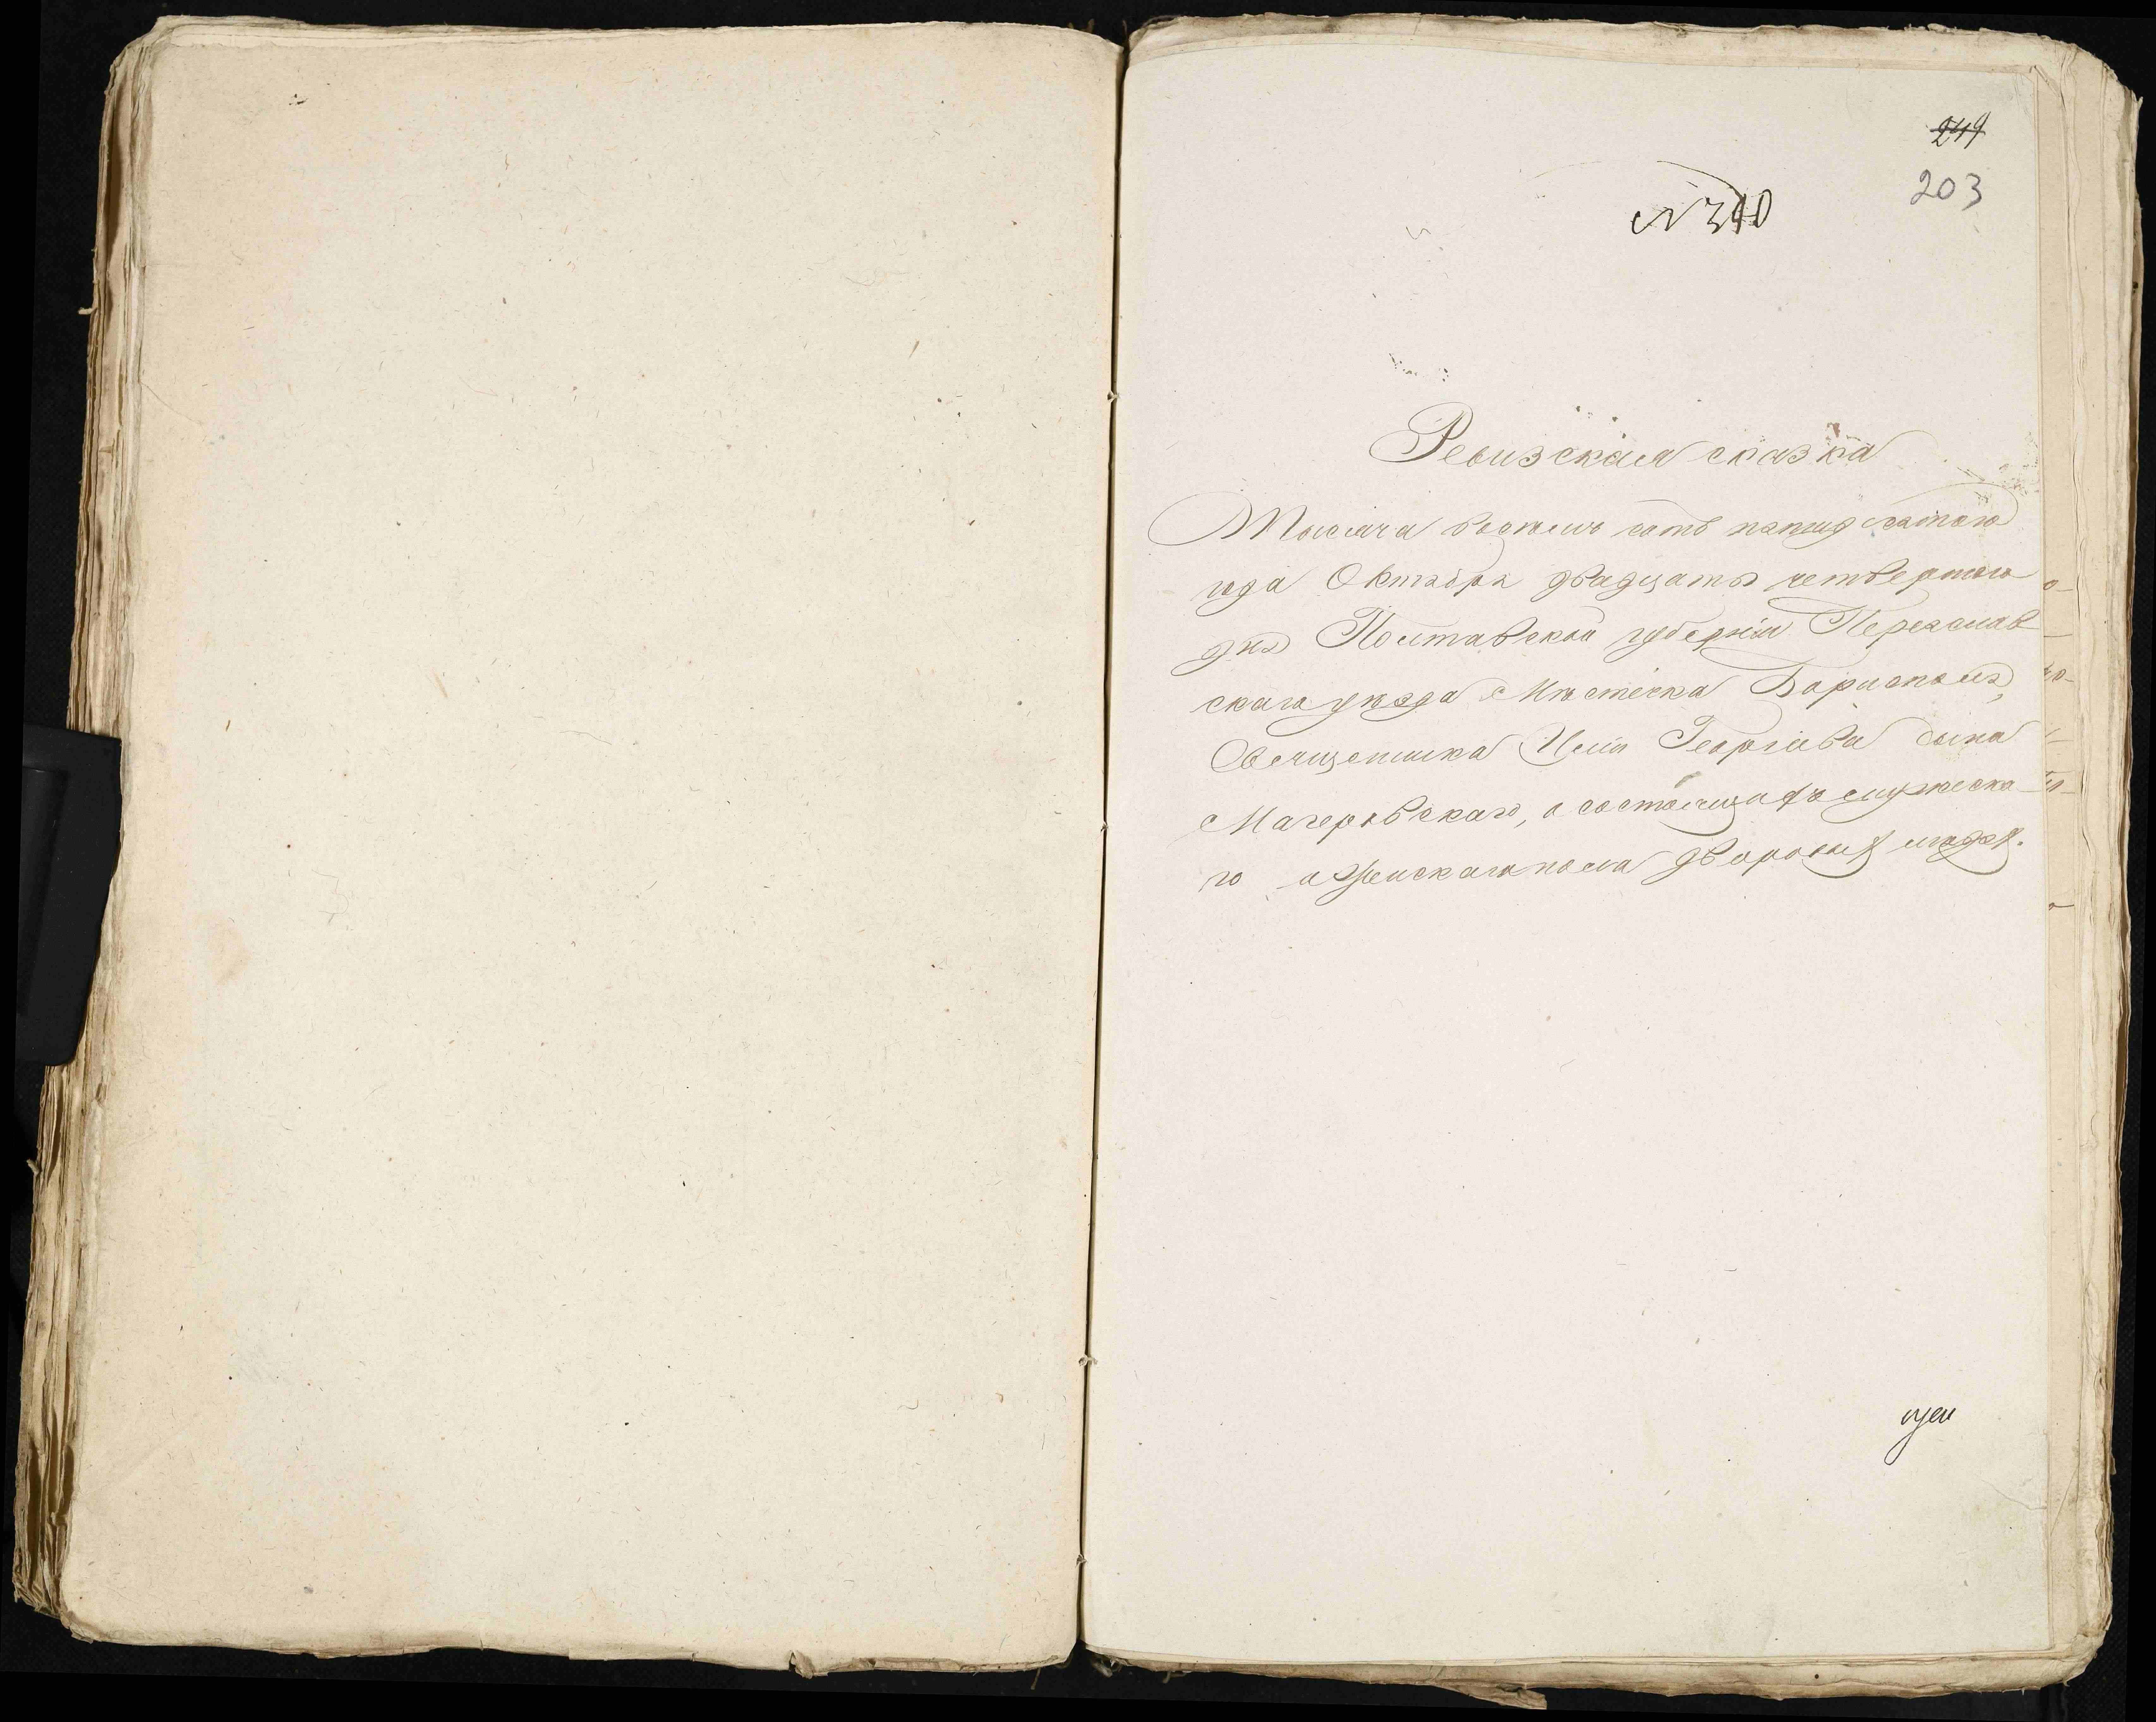 249
203
№ 310
Ревизская сказка
Тысяча восемь сотъ пятидесятого
года Октября двадцать четвертого
дня Полтавской губерніи Переяслав
скаго уѣзда Мѣстечка Борисполя,
Священника Иліи Георгіева сына
Магеровскаго, о состоящихъ мужеска
го и женскаго пола дворовыхъ людях.